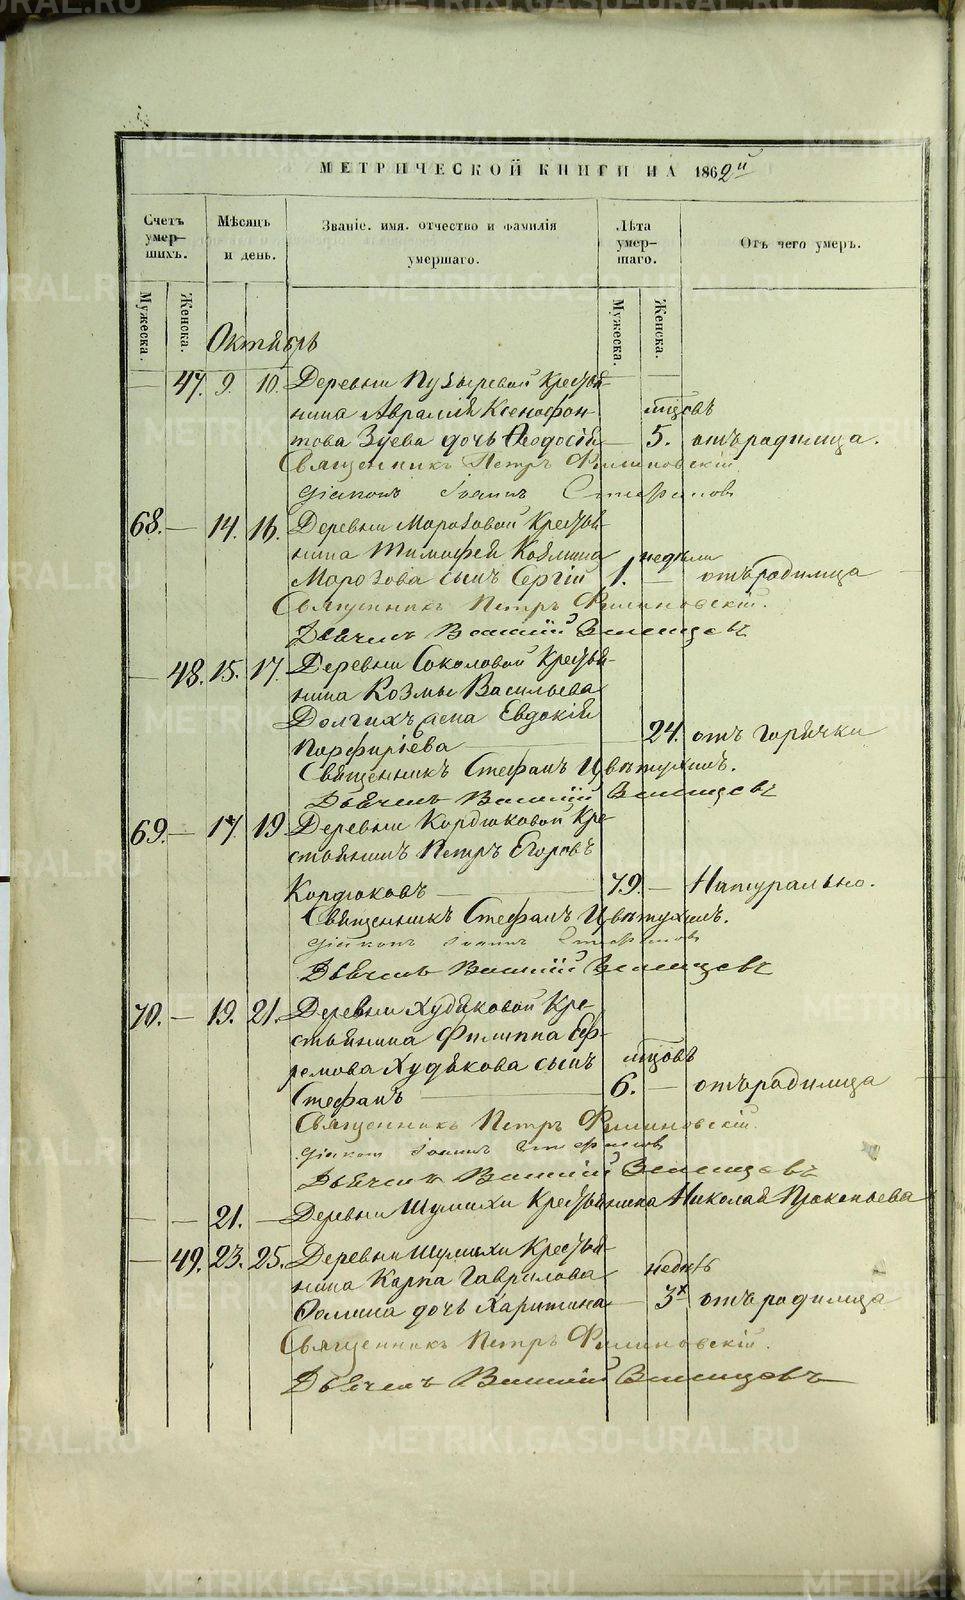 МЕТРИЧЕСКОЙ КНИГИ НА 1862й
Счетъ умер-шихъ.
Мѣсяцъ и день.
Званіе. имя. отчество и фамилія умершаго.
Лѣта умер-шаго.
Отъ чего умеръ.
Мужеска.
Женска.
Мужеска.
Женска.
Октябрь
— 47. 9. 10. Деревни Пузыревой Крестья-
нина Аврамія Ксенофон- мцовъ
това Зуева дочь Ѳеодосія — 5. отъ родимца.
Священникъ Петръ Филиновскій.
Діаконъ Іоаннъ Стефановъ
68. — 14. 16. Деревни Морозовой Крестья-
нина Тимофея Козмина недѣли
Морозова сынъ Сергій 1. — отъ родимца
Священникъ Петръ Филиновскій.
Дьячекъ Василій
— 48. 15. 17. Деревни Соколовой Крестья-
нина Козмы Васильева
Долгихъ жена Евдокія
Порфиріева — 24. отъ горячки
Священникъ Стефанъ Цвѣтухинъ.
Дьячекъ Василій
69. — 17. 19. Деревни Кордюковой Кре-
стьянинъ Петръ Егоровъ
Кордюковъ — 79. — Натурально.
Священникъ Стефанъ Цвѣтухинъ.
Діаконъ Іоаннъ Стефановъ
Дьячекъ Василій
70. — 19. 21. Деревни Худяковой Кре-
стьянина Филиппа Еф-
ремова Худякова сынъ мцовъ
Стефанъ — 6. — отъ родимца
Священникъ Петръ Филиновскій.
Діаконъ Іоаннъ Стефановъ
Дьячекъ Василій
— — 21. — Деревни Шумихи Крестьянина Николая Прокопьева
— 49. 23. 25. Деревни Шумихи Крестья-
нина Карпа Гаврилова недѣль
Фомина дочь Харитина — 3х отъ родимца
Священникъ Петръ Филиновскій.
Дьячекъ Василій
METRIKI.GASO-URAL.RU